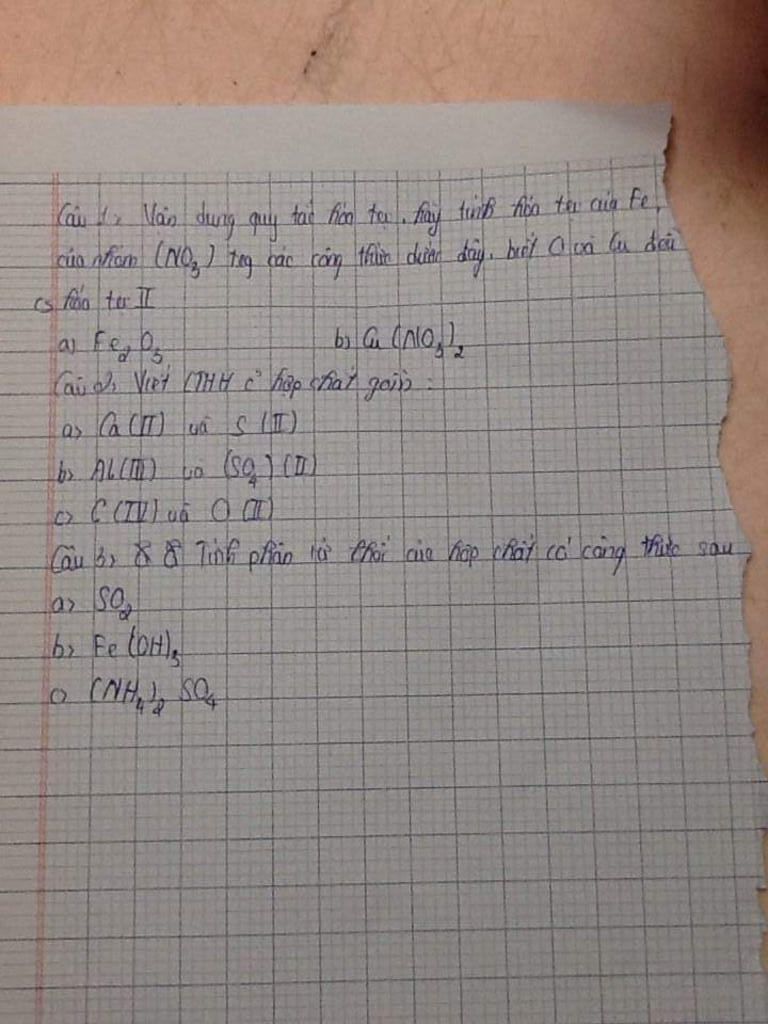 Câu 1, Vận dụng quy tắc hóa trị, hãy tính hóa trị của Fe,
của nhóm (NO3) trg các công thức dưới đây, biết O và Cu đều
có hóa trị II
a) Fe2O3 b) Cu(NO3)2
Câu 2, Viết CTHH c̉ hợp chất gồm:
a) Ca(II) và S(II)
b) Al(III) và (SO4)(II)
c) C(IV) và O(II)
Câu 3, Tính phân tử khối của hợp chất có công thức sau
a) SO2
b) Fe(OH)3
c) (NH4)2SO4